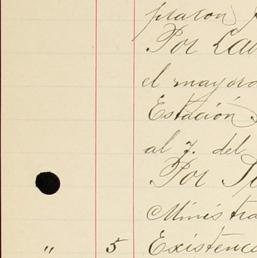 platon
Por Lav
el mayoro
Estación
al 7. del
Por
Ministra
" 5 Existenc